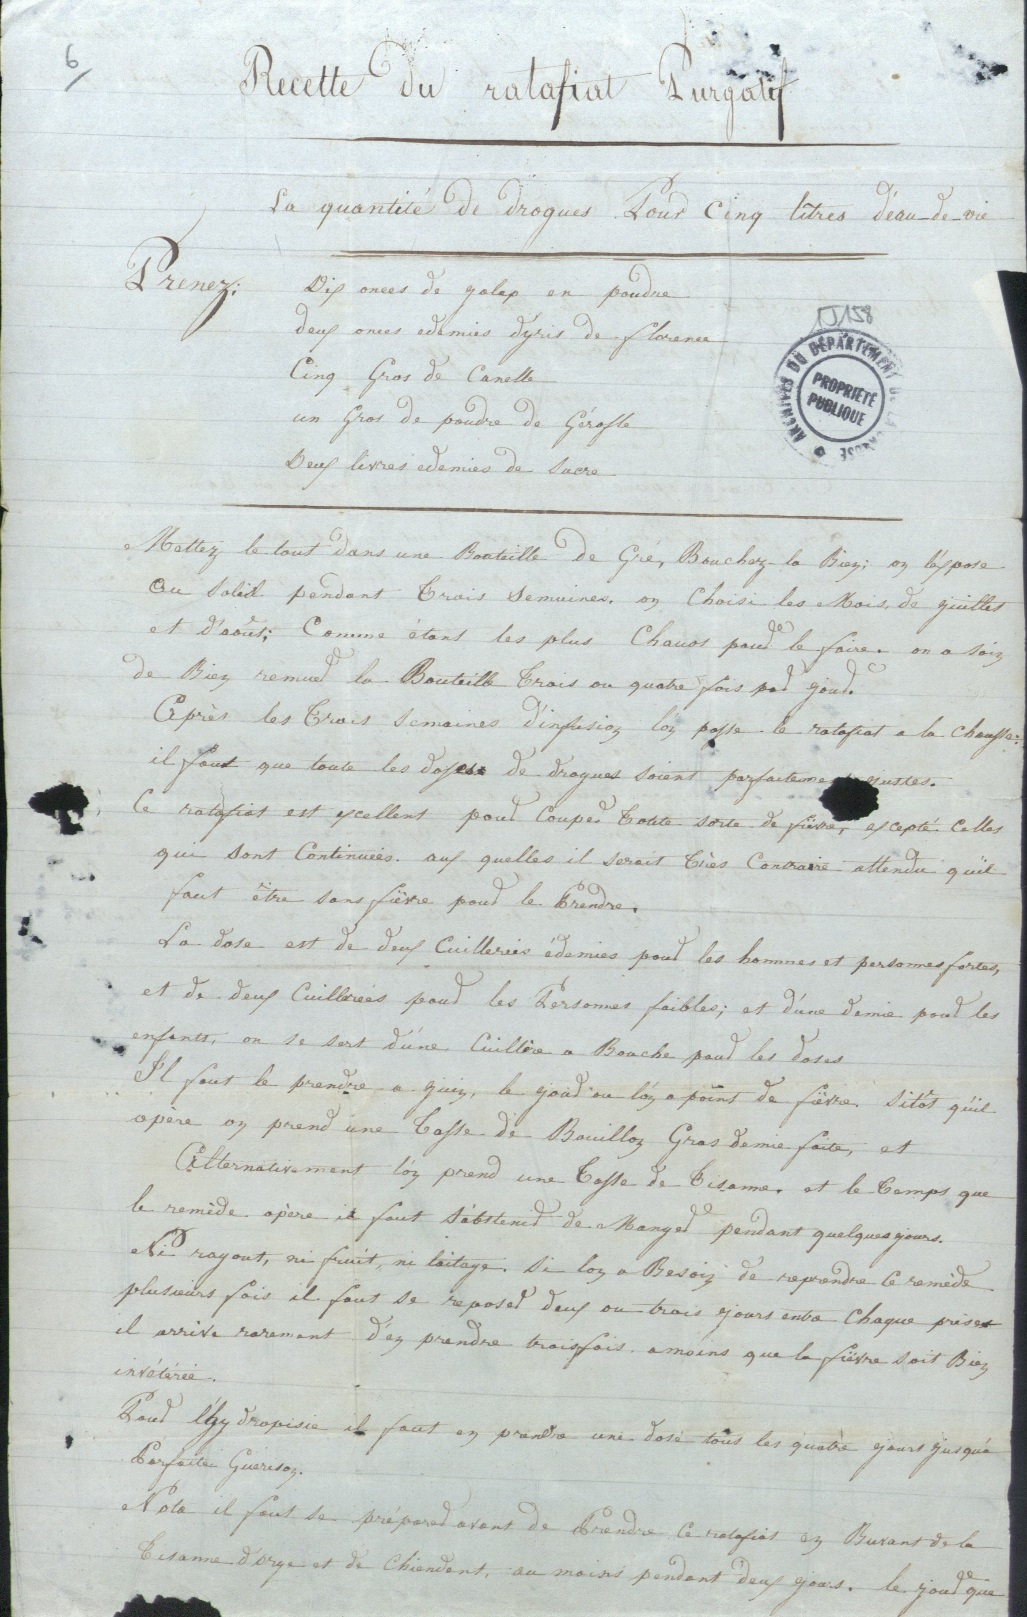 6
Recette du ratafiat Purgatif
La quantité de drogues Pour Cinq litres d'éau-de-vie
Prenez: Dix onces de galap en poudre
deux onces edemies d'yris de florence
Cinq Gros de Canelle
un Gros de poudre de Gérofle
Deux livres edemies de Sucre
1J158
ARCHIVES DU DÉPARTEMENT DE LA CREUSE
PROPRIÉTÉ PUBLIQUE
Mettez le tout dans une Bouteille de Gré, Bouchez la Bien; on l'éxpose
au Soleil pendant trois Semaines. on Choisi les Mois de juillet
et d'août; Comme étant les plus Chauds pour le faire. on a soin
de Bien remuer la Bouteille trois ou quatre fois par jour.
Après les trois Semaines d'infusion l'on passe le ratafiat a la Chausse:
il faut que toute les doses de drogues soient parfaitement justes.
Ce ratafiat est excellent pour Couper toute sorte de fièvre, excepté Celles
qui sont Continuées. aux quelles il serait très Contraire attendu qu'il
faut être sans fièvre pour le Prendre.
La dose est de deux Cuillerées édemies pour les hommes et personnes fortes,
et de deux Cuillerées pour les Personnes faibles; et d'une demie pour les
enfants, on se sert d'une Cuillère a Bouche pour les doses
Il faut le prendre a jeun, le jour ou l'on a point de fièvre. Sitôt qu'il
opère on prend une tasse de Bouillon Gras demie faite, et
Alternativement l'on prend une tasse de tisanne. et le temps que
le remède opère il faut S'abstenir de Manger pendant quelques jours.
Ni ragout, ni fruit, ni laitage. Si l'on a Besoin de reprendre le remède
plusieurs fois il faut se reposer deux ou trois jours entre Chaque prises
il arrive rarement d'en prendre trois fois amoins que la fièvre soit Bien
invétérée.
Pour l'hydropisie il faut en prendre une dose tous les quatre jours jusqu'a
Parfaite Guérison.
Nota il faut se préparer avant de Prendre Ce ratafiat en Buvant de la
tisanne d'orge et de Chiendent, au moins pendant deux jours. le jour que